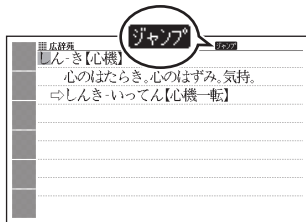 ジャンプ
広辞苑 ジャンプ
しん‐き【心機】
心のはたらき。心のはずみ。気持。
⇨しんき‐いってん【心機一転】